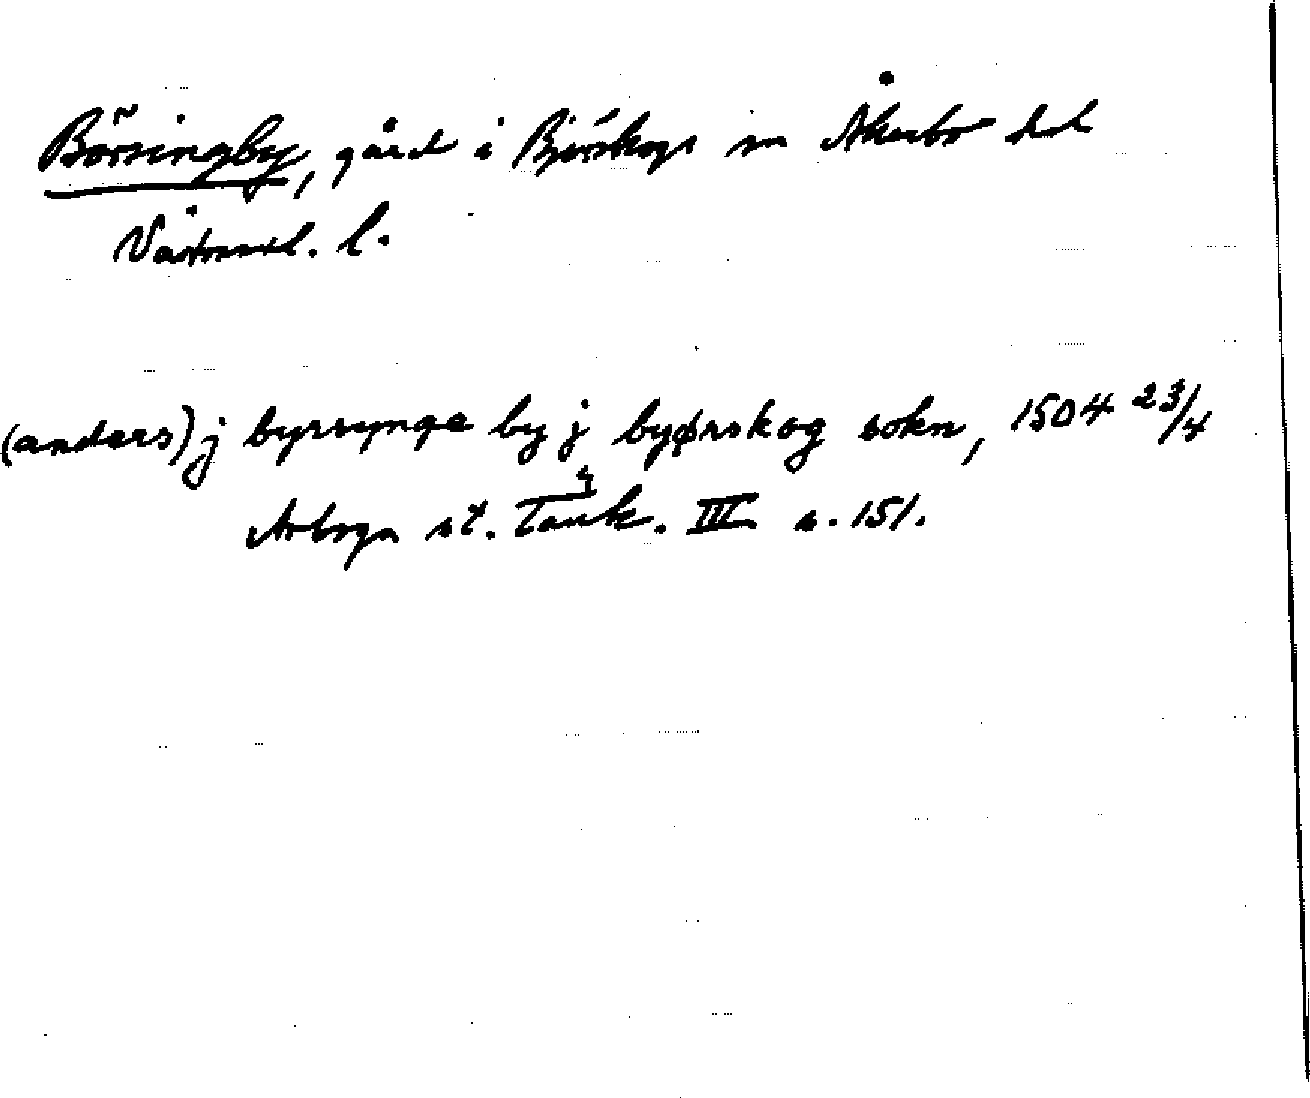 Börsingby, gård i Björskogs sn Åkerbo hd
Västmanl. l.
(anders) j byrsynge by j byørskog sokn, 1504 23/4
Arboga st. Tänk. III s. 151.